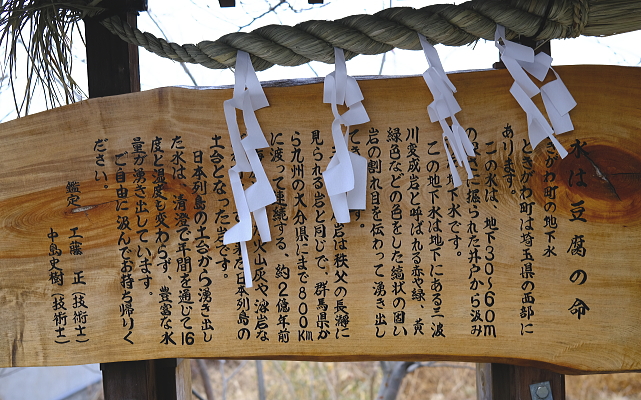 水は豆腐の命
きがわ町の地下水
ときがわ町は埼玉県の西部に
あります。
この水は、地下30〜60m
に掘られた井戸から汲み
地下水です。
この地下水は地下にある三波
川変成岩と呼ばれる赤や緑、黄
緑色などの色をした縞状の固い
岩の割れ目を伝わって湧き出し
て
す。
岩は秩父の長瀞に
見られる岩と同じで、群馬県か
ら九州の大分県にまで800Km
に渡って連続する、約2億年前
火山灰や溶岩な
た日本列島の
土台となった岩です。
日本列島の土台から湧き出し
た水は、清澄で年間を通じて16
度と温度も変わらず、豊富な水
量が湧き出しています。
ご自由に汲んでお持ち帰りく
ださい。
鑑定 工藤 正(技術士)
中島史樹(技術士)